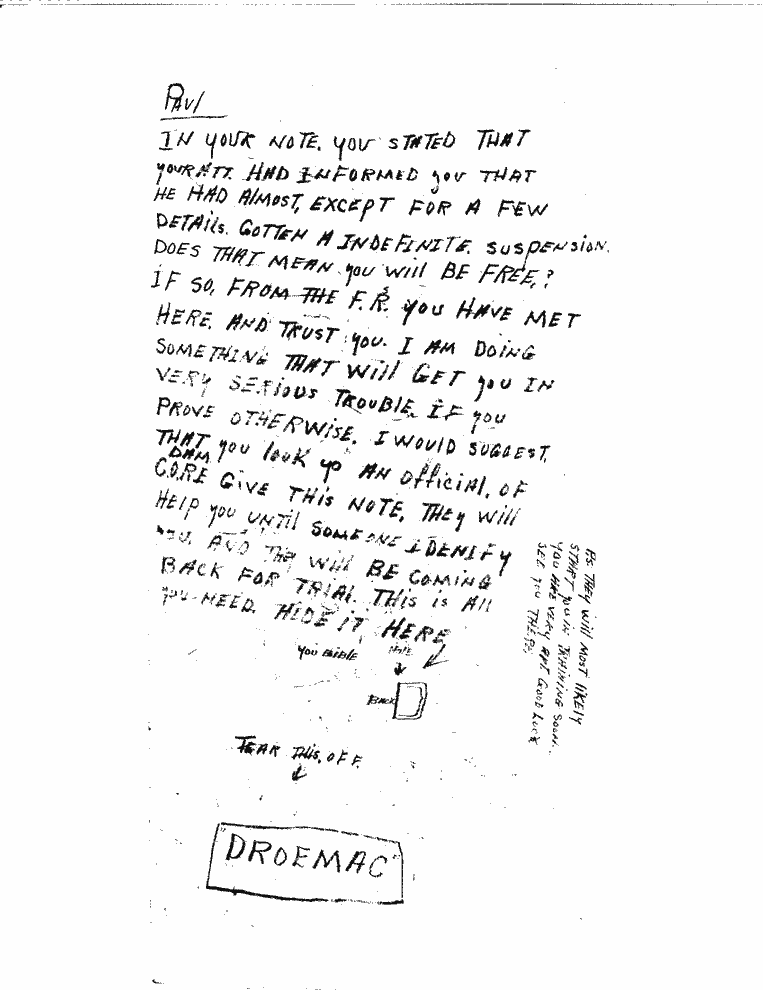 PAUl
IN YOUR NOTE. YOU STATED THAT
YOUR ATT. HAD INFORMED YOU THAT
HE HAD AlMOST, EXCEPT FOR A FEW
DETAils. GOTTEN A INDEFINITE. SUSPENSION.
DOES THAT MEAN YOU Will BE FREE,?
IF SO, FROM THE F.R.S YOU HAVE MET
HERE. AND TRUST YOU. I AM DOING
SOMETHING THAT Will GET YOU IN
VERY SERIOUS TROUBLE. IF YOU
PROVE OTHERWISE. I WOULD SUGGEST,
THAT YOU look up AN officiAl, OF
DAM
C.O.R.E GIVE THIS NOTE, THEY Will
HELP YOU UNTIL SOMEONE IDENIFY
YOU. AND THEY Will BE COMING
BACK FOR TRIAL. THIS is All
YOU NEED. HIDE IT, HERE
YOU BIBLE
BACK
TEAR THIS, OFF.
"DROEMAC"
PS: THEY Will MOST likELY
START YOU IN TRAINING SOON.
YOU ARE VERY APT GOOD LUCK
SEE YOU THERE.